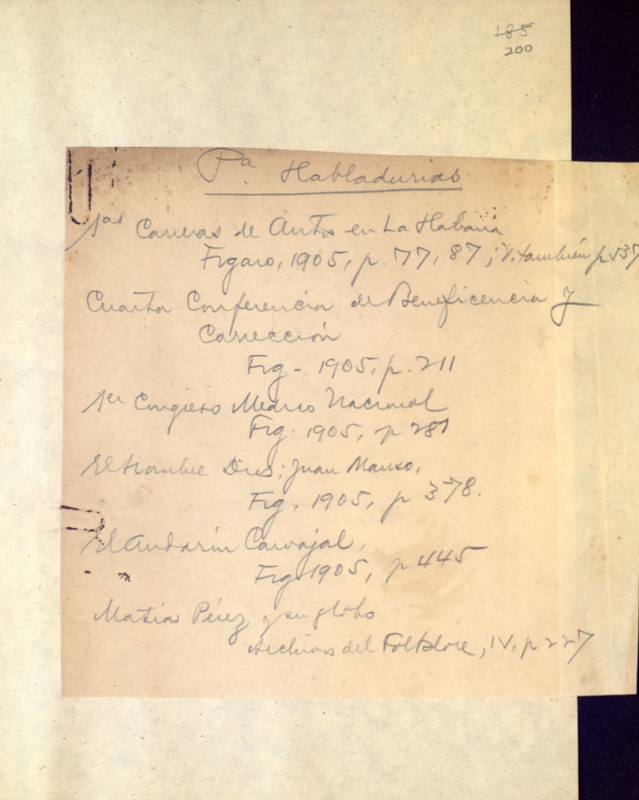 185
200
Pa. Habladurias
1as Carreras de Autos en La Habana
Figaro, 1905, p. 77, 87; V. también p 537
Cuarta Conferencia de Beneficencia y
Corrección
Fig - 1905, p. 211
1er Congreso Médico Nacional
Fig. 1905, p 281
El Hombre Dios: Juan Manso,
Fig. 1905, p 378.
El Andarín Carvajal,
Fig 1905, p 445
Matias Pérez y su globo
Archivos del Folklore, IV. p 227